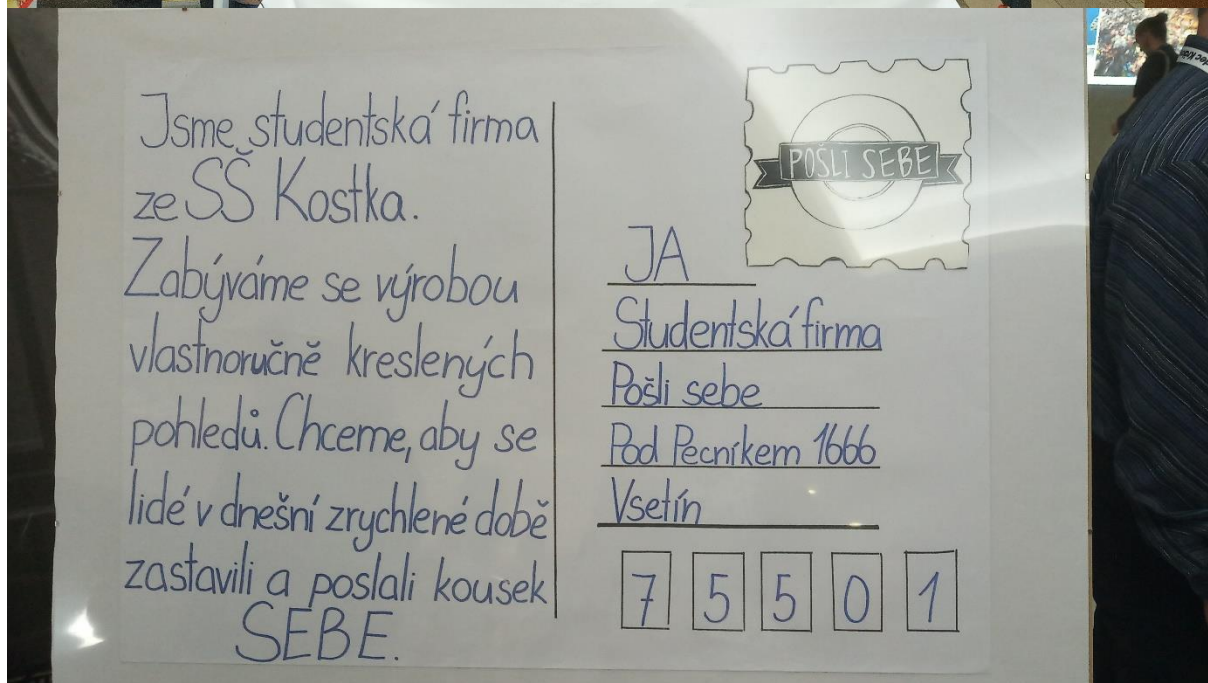 Jsme studentská firma
ze SŠ Kostka.
Zabýváme se výrobou
vlastnoručně kreslených
pohledů. Chceme, aby se
lidé v dnešní zrychlené době
zastavili a poslali kousek
SEBE.
POŠLI SEBE
JA
Studentská firma
Pošli sebe
Pod Pecníkem 1666
Vsetín
7 5 5 0 1